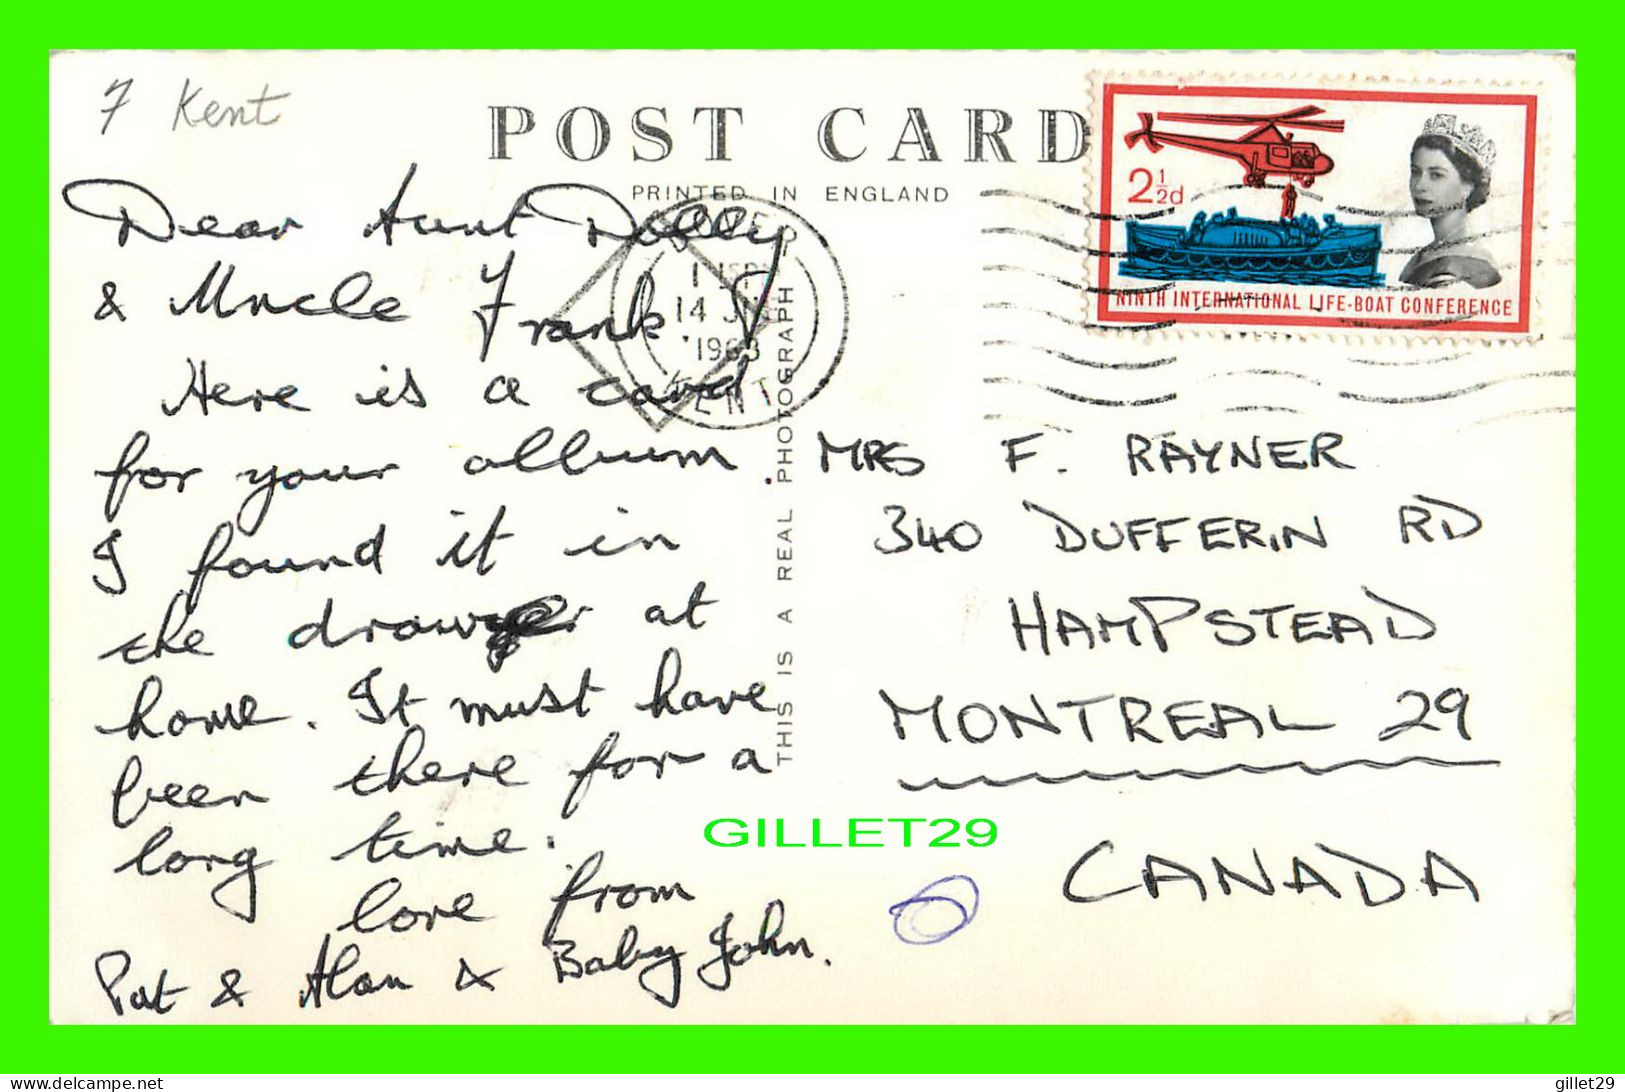 7 Kent
POST CARD
PRINTED IN ENGLAND
2½d
NINTH INTERNATIONAL LIFE-BOAT CONFERENCE
14 JNE
1963
KENT
Dear Aunt Dolly
& Uncle Frank.
Here is a card
for your album
I found it in
the drawer at
home. It must have
been there for a
long time.
love from
Pat & Alan & Baby John.
THIS IS A REAL PHOTOGRAPH
MRS F. RAYNER
340 DUFFERIN RD
HAMPSTEAD
MONTREAL 29
CANADA
GILLET29
delcampe.net
gillet29